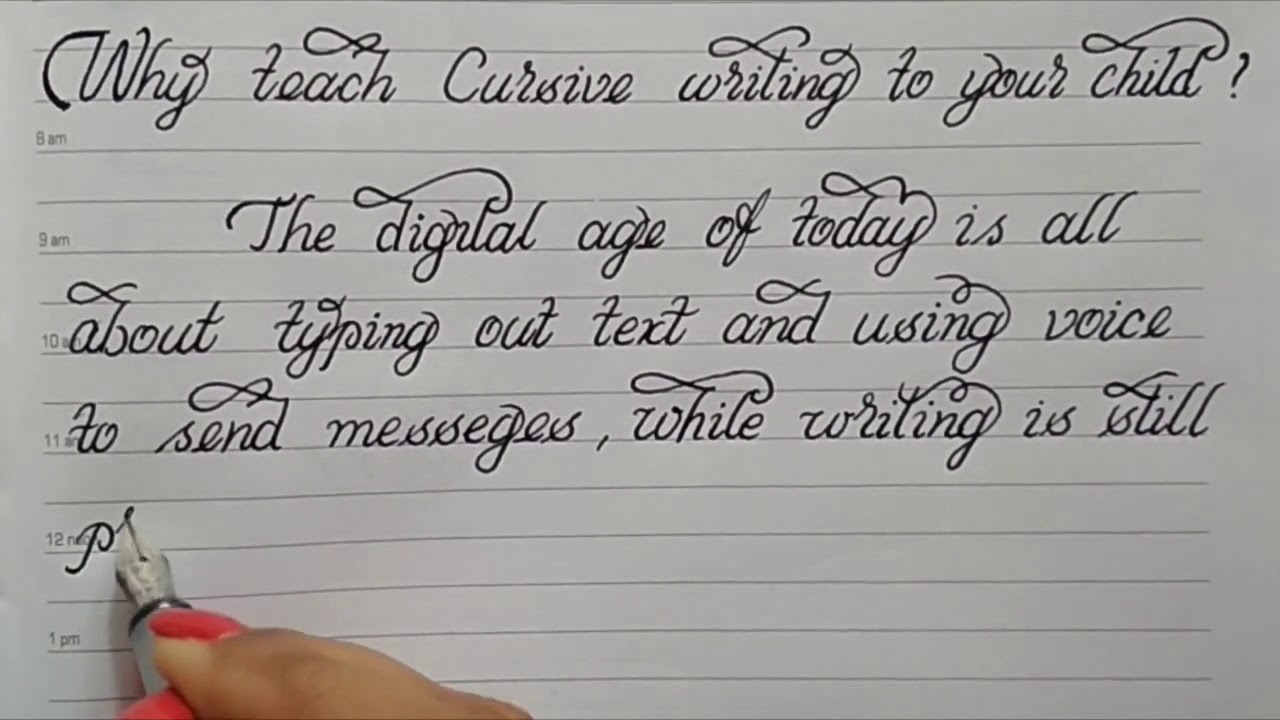 Why teach Cursive writing to your child?
8 am
The digital age of today is all
9 am
about typing out text and using voice
10 a
to send messeges, while writing is still
11 am
p
12 no
1 pm